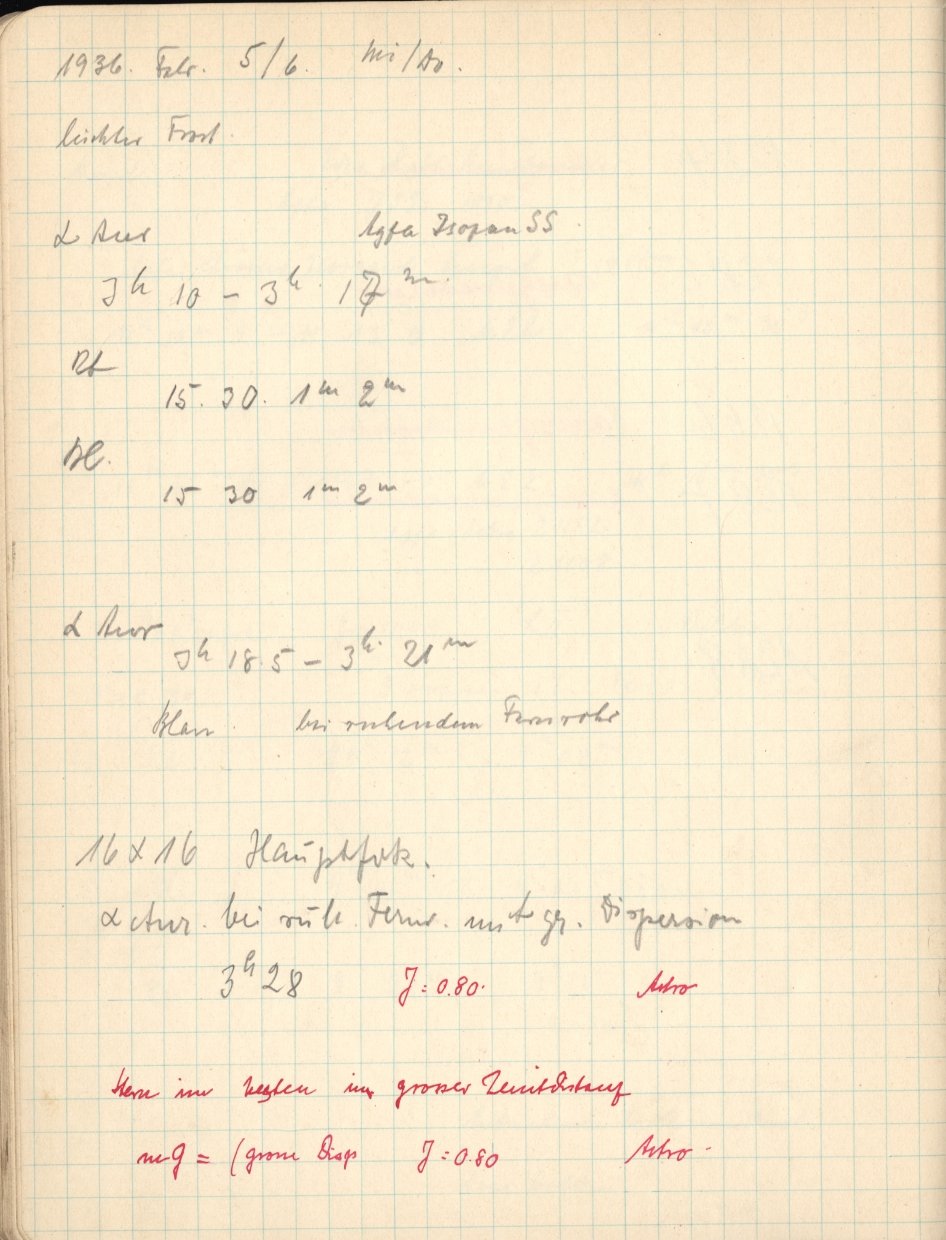 1936. Febr. 5/6. Mi/Do.
leichter Frost.
α Aur Agfa Isopan SS
3h 10 – 3h 17m.
Rt
15. 30. 1m 2m
Bl.
15 30 1m 2m
α Aur
3h 18.5 – 3h 21m
Blau. bei ruhendem Fernrohr
16 x 16 Hauptfok.
α Aur. bei ruh. Fernr. mit gr. Dispersion
3h 28 J = 0.80. Astro
Stern im Westen in grosser Zenitdistanz
m G = (grosse Disp J = 0.80 Astro